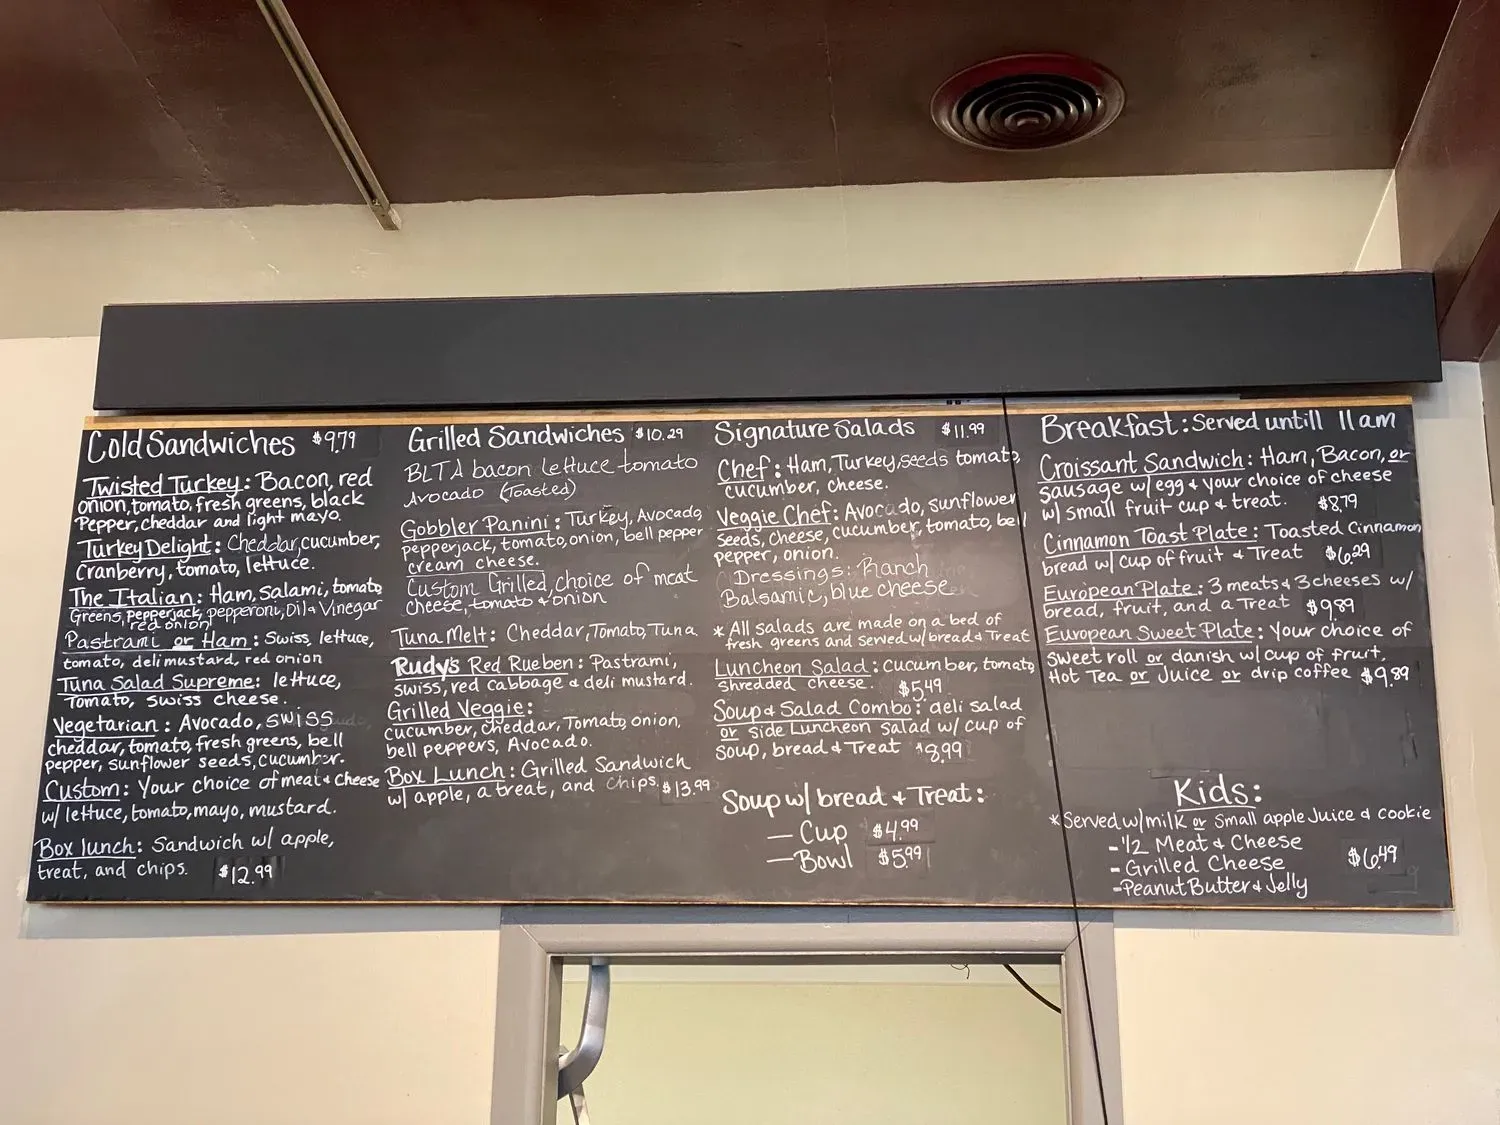 Cold Sandwiches $9.79
Twisted Turkey: Bacon, red
onion, tomato, fresh greens, black
Pepper, cheddar and light mayo.
Turkey Delight: Cheddar, cucumber,
Cranberry, tomato, lettuce.
The Italian: Ham, Salami, tomato
Greens, pepperjack, pepperoni, Oil & Vinegar
red onion
Pastrami or Ham: Swiss, lettuce,
tomato, deli mustard, red onion
Tuna Salad Supreme: lettuce,
Tomato, swiss cheese.
Vegetarian: Avocado, SWISS
cheddar, tomato, fresh greens, bell
pepper, sunflower seeds, cucumber.
Custom: Your choice of meat & cheese
w/ lettuce, tomato, mayo, mustard.
Box lunch: Sandwich w/ apple,
treat, and chips. $12.99
Grilled Sandwiches $10.29
BLTA bacon lettuce tomato
Avocado (Toasted)
Gobbler Panini: Turkey, Avocado,
pepperjack, tomato, onion, bell pepper
cream cheese.
Custom Grilled, choice of meat
cheese, tomato & onion
Tuna Melt: Cheddar, Tomato, Tuna
Rudy's Red Rueben: Pastrami,
swiss, red cabbage & deli mustard.
Grilled Veggie:
cucumber, cheddar, Tomato, onion,
bell peppers, Avocado.
Box Lunch: Grilled Sandwich
w/ apple, a treat, and chips. $13.99
Signature Salads $11.99
Chef: Ham, Turkey, seeds tomato,
cucumber, cheese.
Veggie Chef: Avocado, sunflower
seeds, cheese, cucumber, tomato, bell
pepper, onion.
Dressings: Ranch
Balsamic, blue cheese
* All salads are made on a bed of
fresh greens and served w/ bread & Treat
Luncheon Salad: cucumber, tomato,
shredded cheese. $5.49
Soup & Salad Combo: deli salad
or side Luncheon salad w/ cup of
soup, bread & Treat $8.99
Soup w/ bread & Treat:
— Cup $4.99
— Bowl $5.99
Breakfast: Served untill 11am
Croissant Sandwich: Ham, Bacon, or
sausage w/ egg & your choice of cheese
w/ small fruit cup & treat. $8.79
Cinnamon Toast Plate: Toasted Cinnamon
bread w/ cup of fruit & Treat $6.29
European Plate: 3 meats & 3 cheeses w/
bread, fruit, and a Treat $9.89
European Sweet Plate: Your choice of
sweet roll or danish w/ cup of fruit,
Hot Tea or Juice or drip coffee $9.89
Kids:
* Served w/ milk or small apple Juice & cookie
- 1/2 Meat & Cheese
- Grilled Cheese $6.49
- Peanut Butter & Jelly